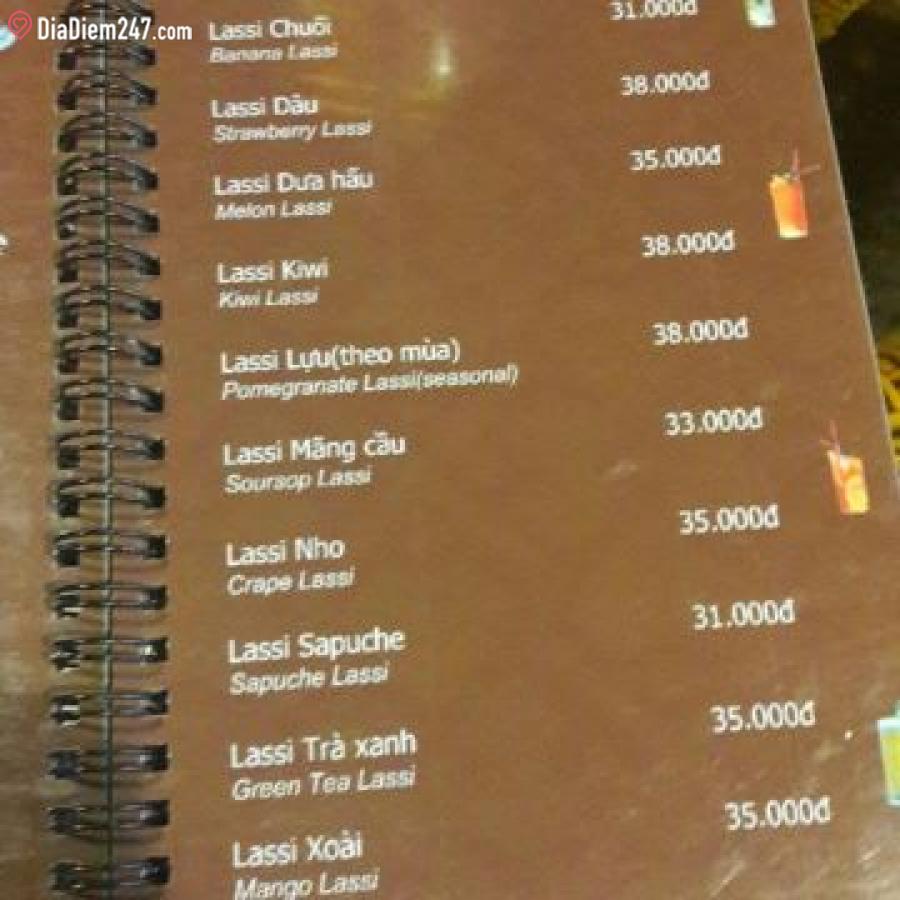 DiaDiem247.com
Lassi Chuối 31.000đ
Banana Lassi
Lassi Dâu 38.000đ
Strawberry Lassi
Lassi Dưa hấu 35.000đ
Melon Lassi
Lassi Kiwi 38.000đ
Kiwi Lassi
Lassi Lựu(theo mùa) 38.000đ
Pomegranate Lassi(seasonal)
Lassi Mãng cầu 33.000đ
Soursop Lassi
Lassi Nho 35.000đ
Crape Lassi
Lassi Sapuche 31.000đ
Sapuche Lassi
Lassi Trà xanh 35.000đ
Green Tea Lassi
Lassi Xoài 35.000đ
Mango Lassi